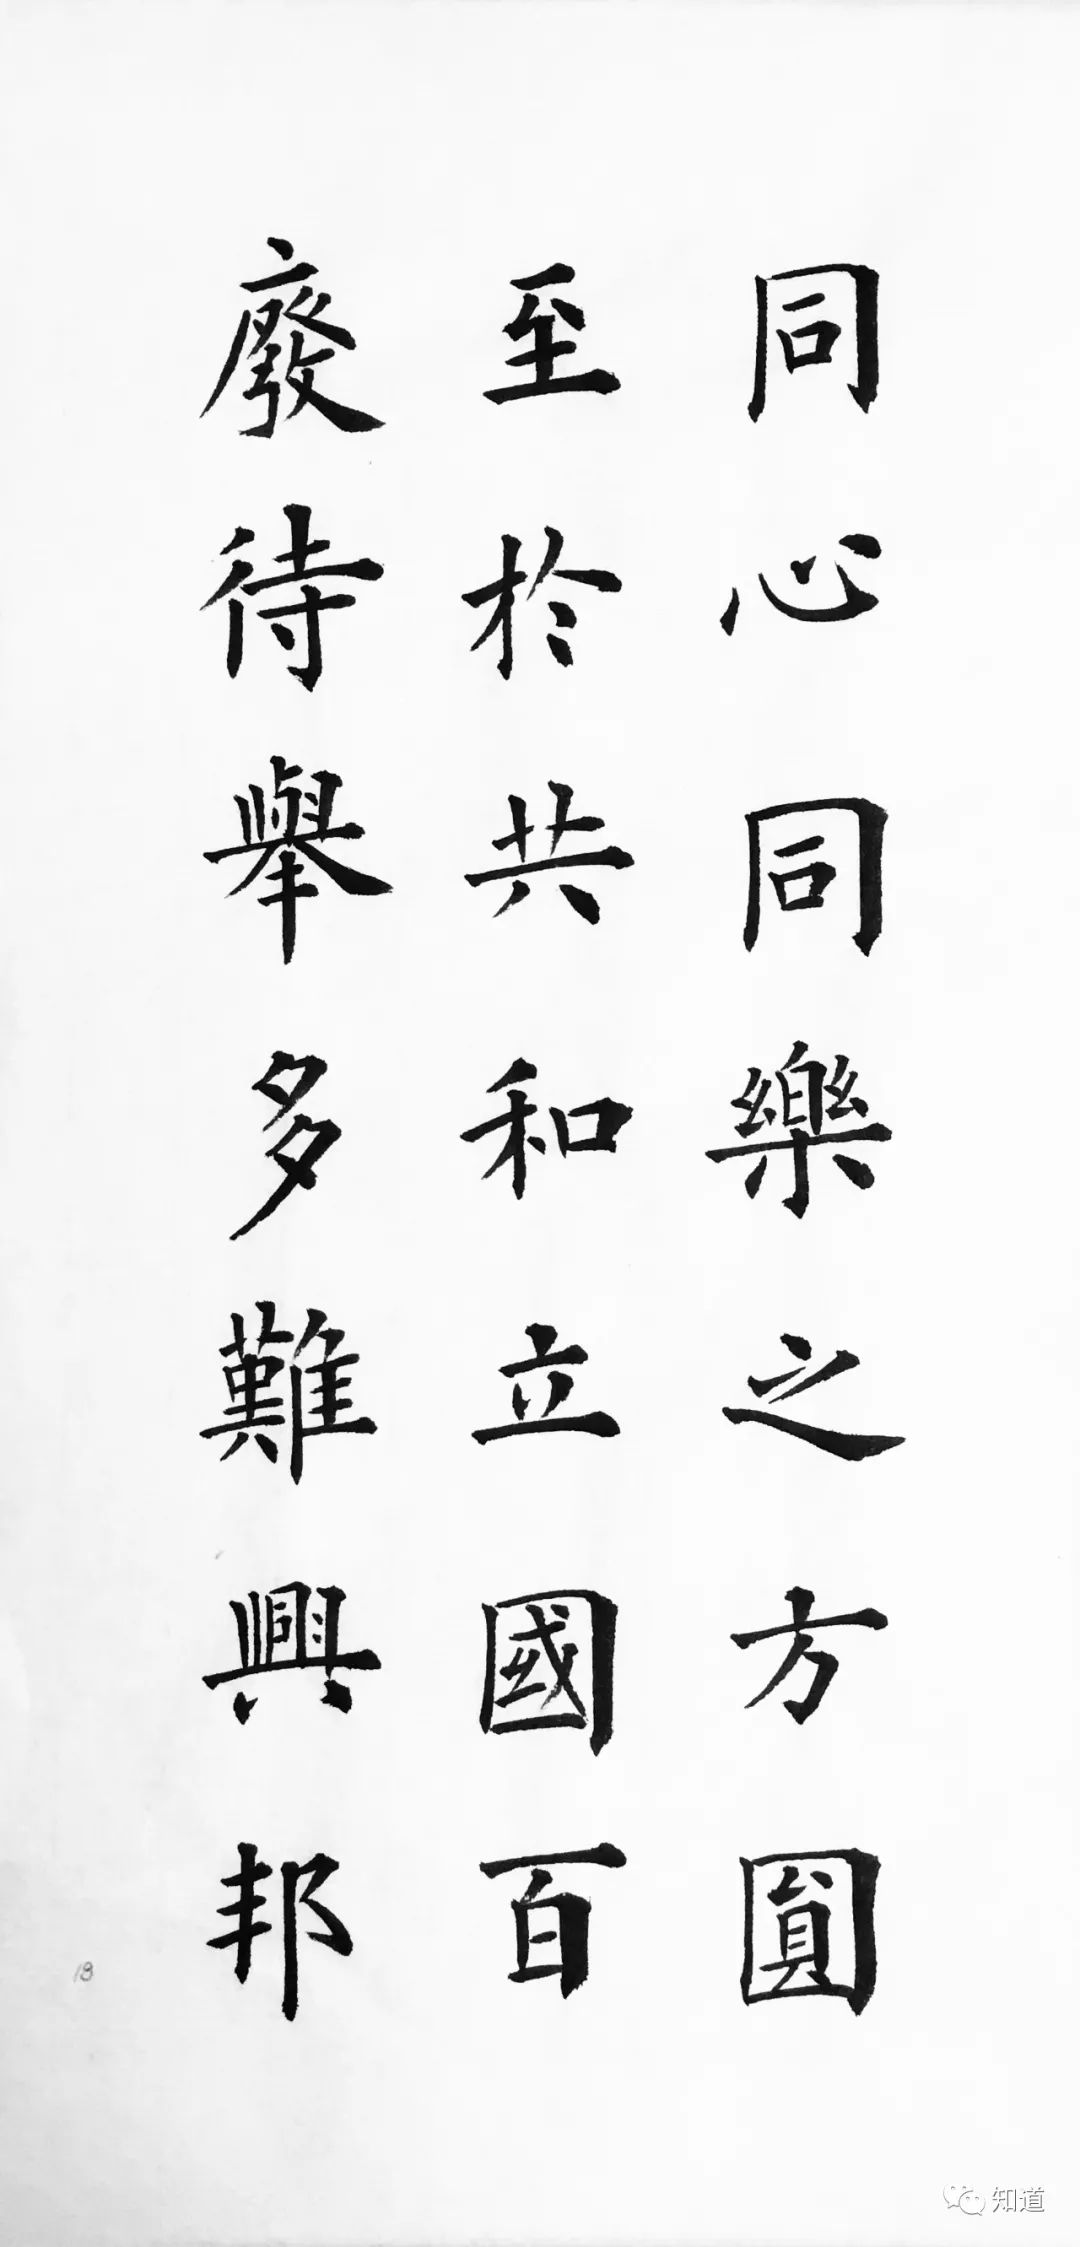 同心同樂之方圓
至於共和立國百
廢待舉多難興邦
18
知道